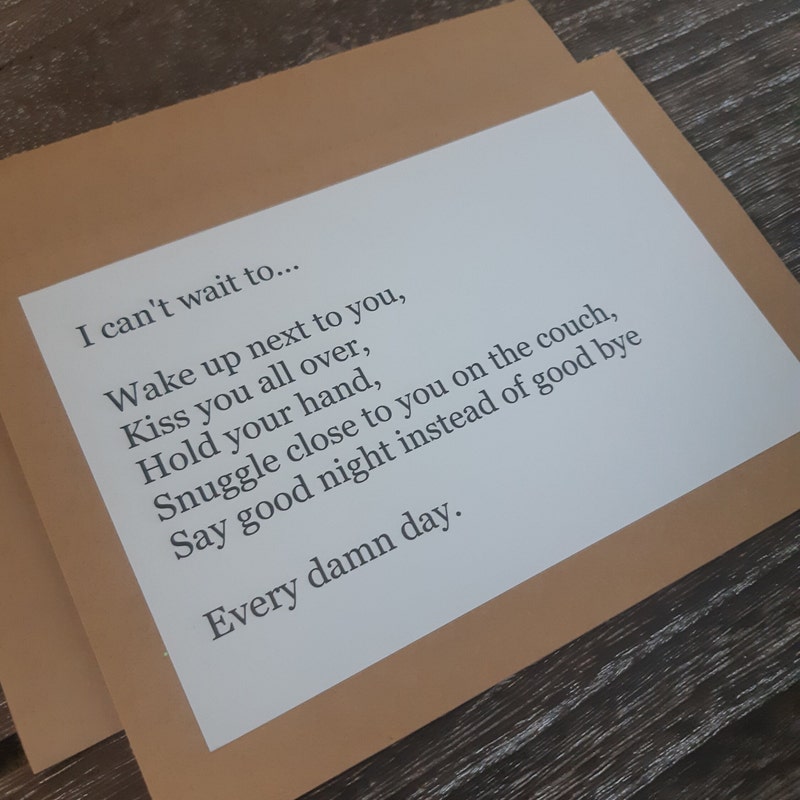 I can't wait to...
Wake up next to you,
Kiss you all over,
Hold your hand,
Snuggle close to you on the couch,
Say good night instead of good bye
Every damn day.